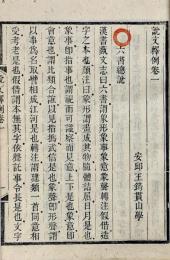 說文釋例卷一
安邱王筠貫山學
六書總說
漢書藝文志曰六書謂象形象事象意象聲轉注假借造
字之本也顏注曰象形謂畫成其物隨體詰屈日月是也
象事即指事也謂視而可識察而見意上下是也象意即
會意也謂比類合誼以見指撝武信是也象聲即形聲謂
以事為名取譬相成江河是也轉注謂建類一首同意相
受考老是也假借謂本無其字依聲託事令長是也文字